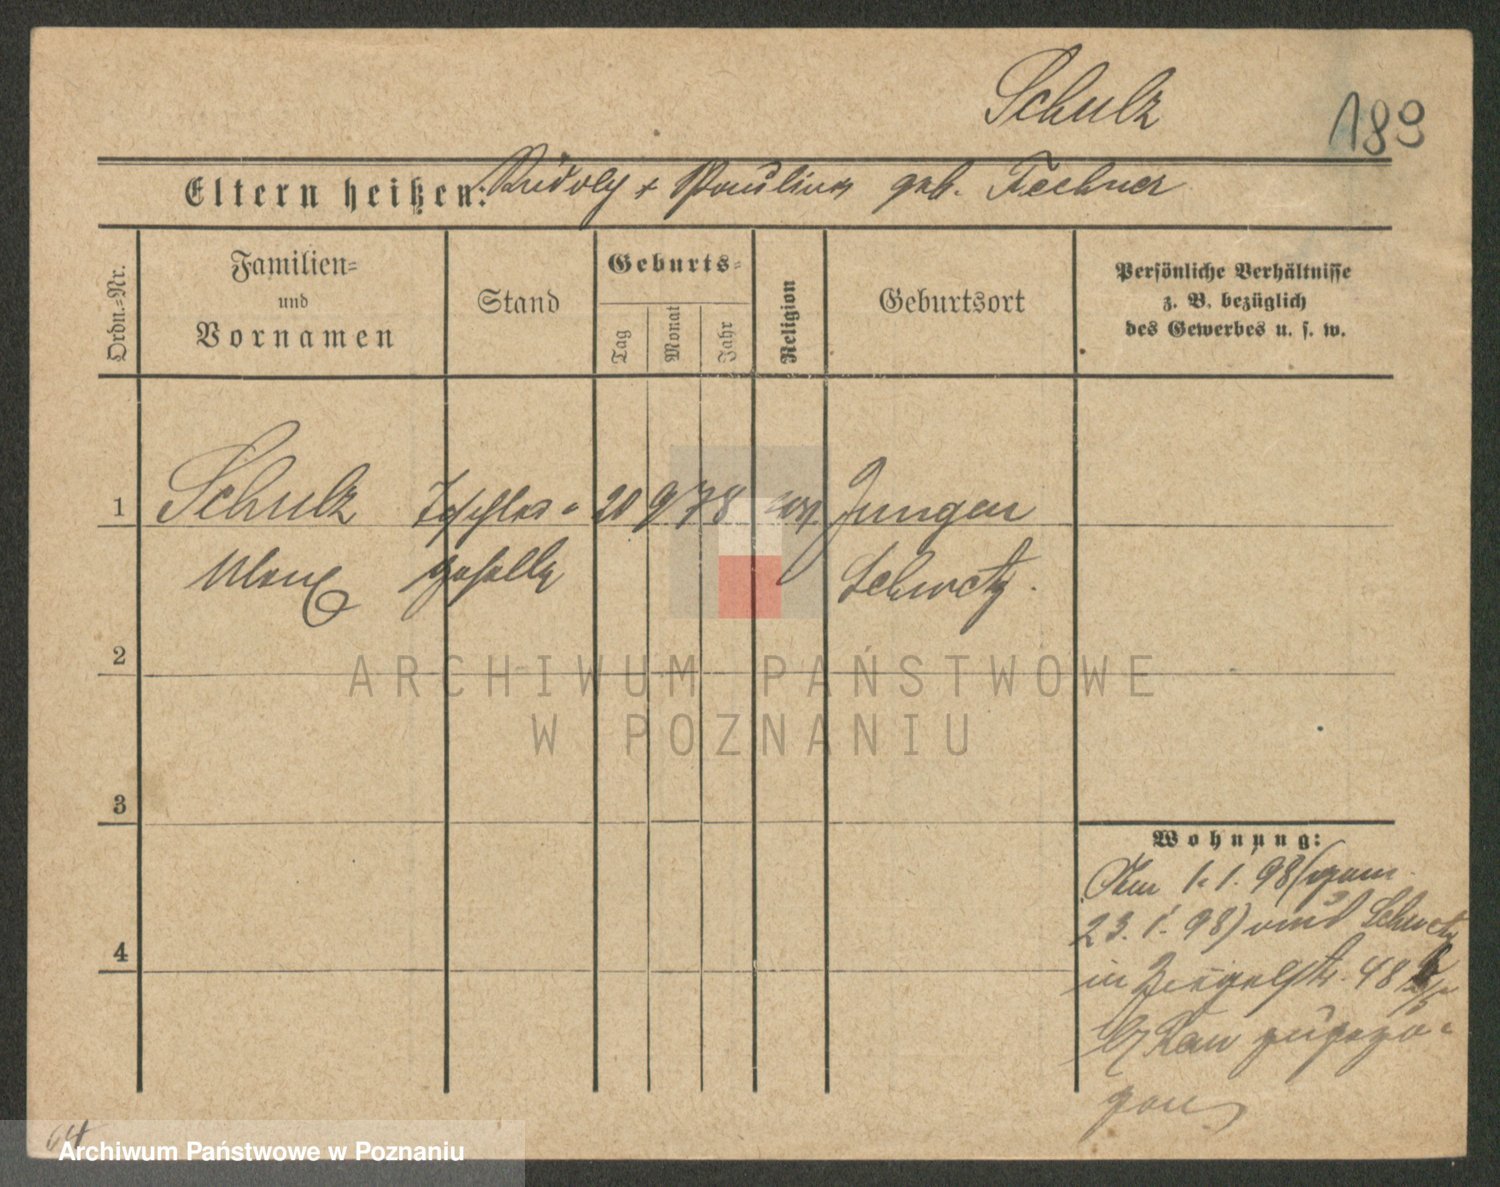 Schulz
189
Eltern heißen: Rudolf + Pauline geb. Fechner
Ordn.-Nr.
Familien-
und
Vornamen
Stand
Geburts-
Tag
Monat
Jahr
Religion
Geburtsort
Persönliche Verhältnisse
z. B. bezüglich
des Gewerbes u. s. w.
1
Schulz Tischler- 20 9 78 ev. Jungen
Max geselle Schwetz.
2
ARCHIWUM PAŃSTWOWE
W POZNANIU
3
Wohnung:
Am 1.1.98 (gem.
23.1.98) aus Schwetz
in Ziegelstr. 48
b/ Kau zugezo-
gen
4
64
Archiwum Państwowe w Poznaniu